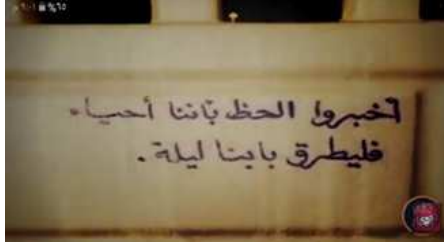 ٩:٠١ %٦٥
أخبروا الحظ بأننا أحياء
فليطرق بابنا ليلة .